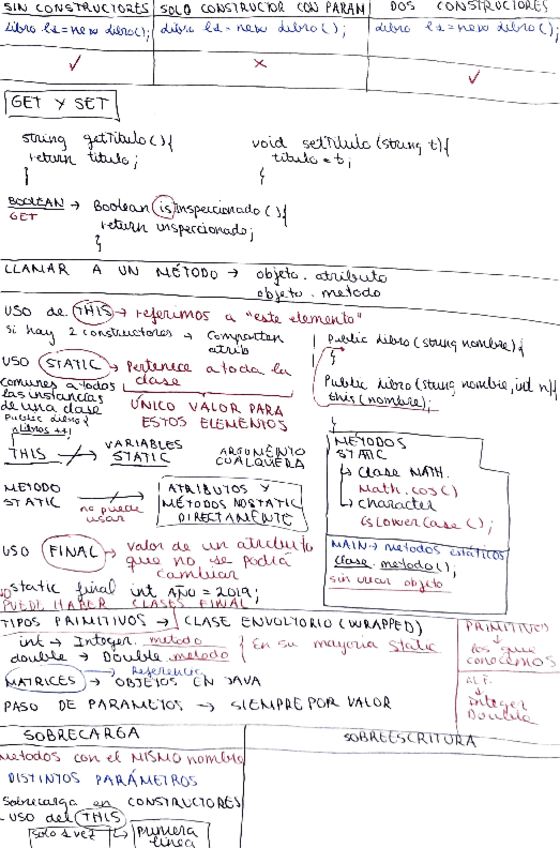 SIN CONSTRUCTORES | SOLO CONSTRUCTOR CON PARAM | DOS CONSTRUCTORES
Libro l1 = new Libro(); | Libro l1 = new Libro(); | Libro l1 = new Libro();
✓ × ✓
GET Y SET
string getTitulo(){
return titulo;
}
void setTitulo (string t){
titulo = t;
}
BOOLEAN → Boolean isInspeccionado(){
GET
return inspeccionado;
}
LLAMAR A UN MÉTODO → objeto.atributo
objeto.metodo
USO de THIS → referimos a "este elemento"
Si hay 2 constructores → Comparten
atrib
Public libro (string nombre){
}
Public libro (string nombre, int n){
this(nombre);
}
USO STATIC → Pertenece a toda la
clase
comunes a todos
las instancias
de una clase
ÚNICO VALOR PARA
ESTOS ELEMENTOS
Public libro {
nlibros ++;
THIS → VARIABLES
STATIC
ARGUMENTO
CUALQUIERA
METODO
STATIC
no puede
usar
ATRIBUTOS Y
MÉTODOS NO STATIC
DIRECTAMENTE
MÉTODOS
STATIC
↳ Clase MATH.
Math.cos()
↳ character
isLowerCase();
MAIN → metodos estáticos
clase.metodo();
sin crear objeto
USO FINAL → valor de un atributo
que no se podrá
cambiar
static final int AÑO = 2019;
PUEDE HABER CLASES FINAL
TIPOS PRIMITIVOS → CLASE ENVOLTORIO (WRAPPED)
int → Integer.metodo
double → Double.metodo
En su mayoria static
PRIMITIVO
↓
los que
conocemos
↓
Integer
Double
MATRICES → Referencia
OBJETOS EN JAVA
PASO DE PARAMETOS → SIEMPRE POR VALOR
SOBRECARGA | SOBREESCRITURA
metodos con el MISMO nombre
DISTINTOS PARÁMETROS
Sobrecarga en CONSTRUCTORES
USO del THIS
solo 1 vez ↳ primera
linea